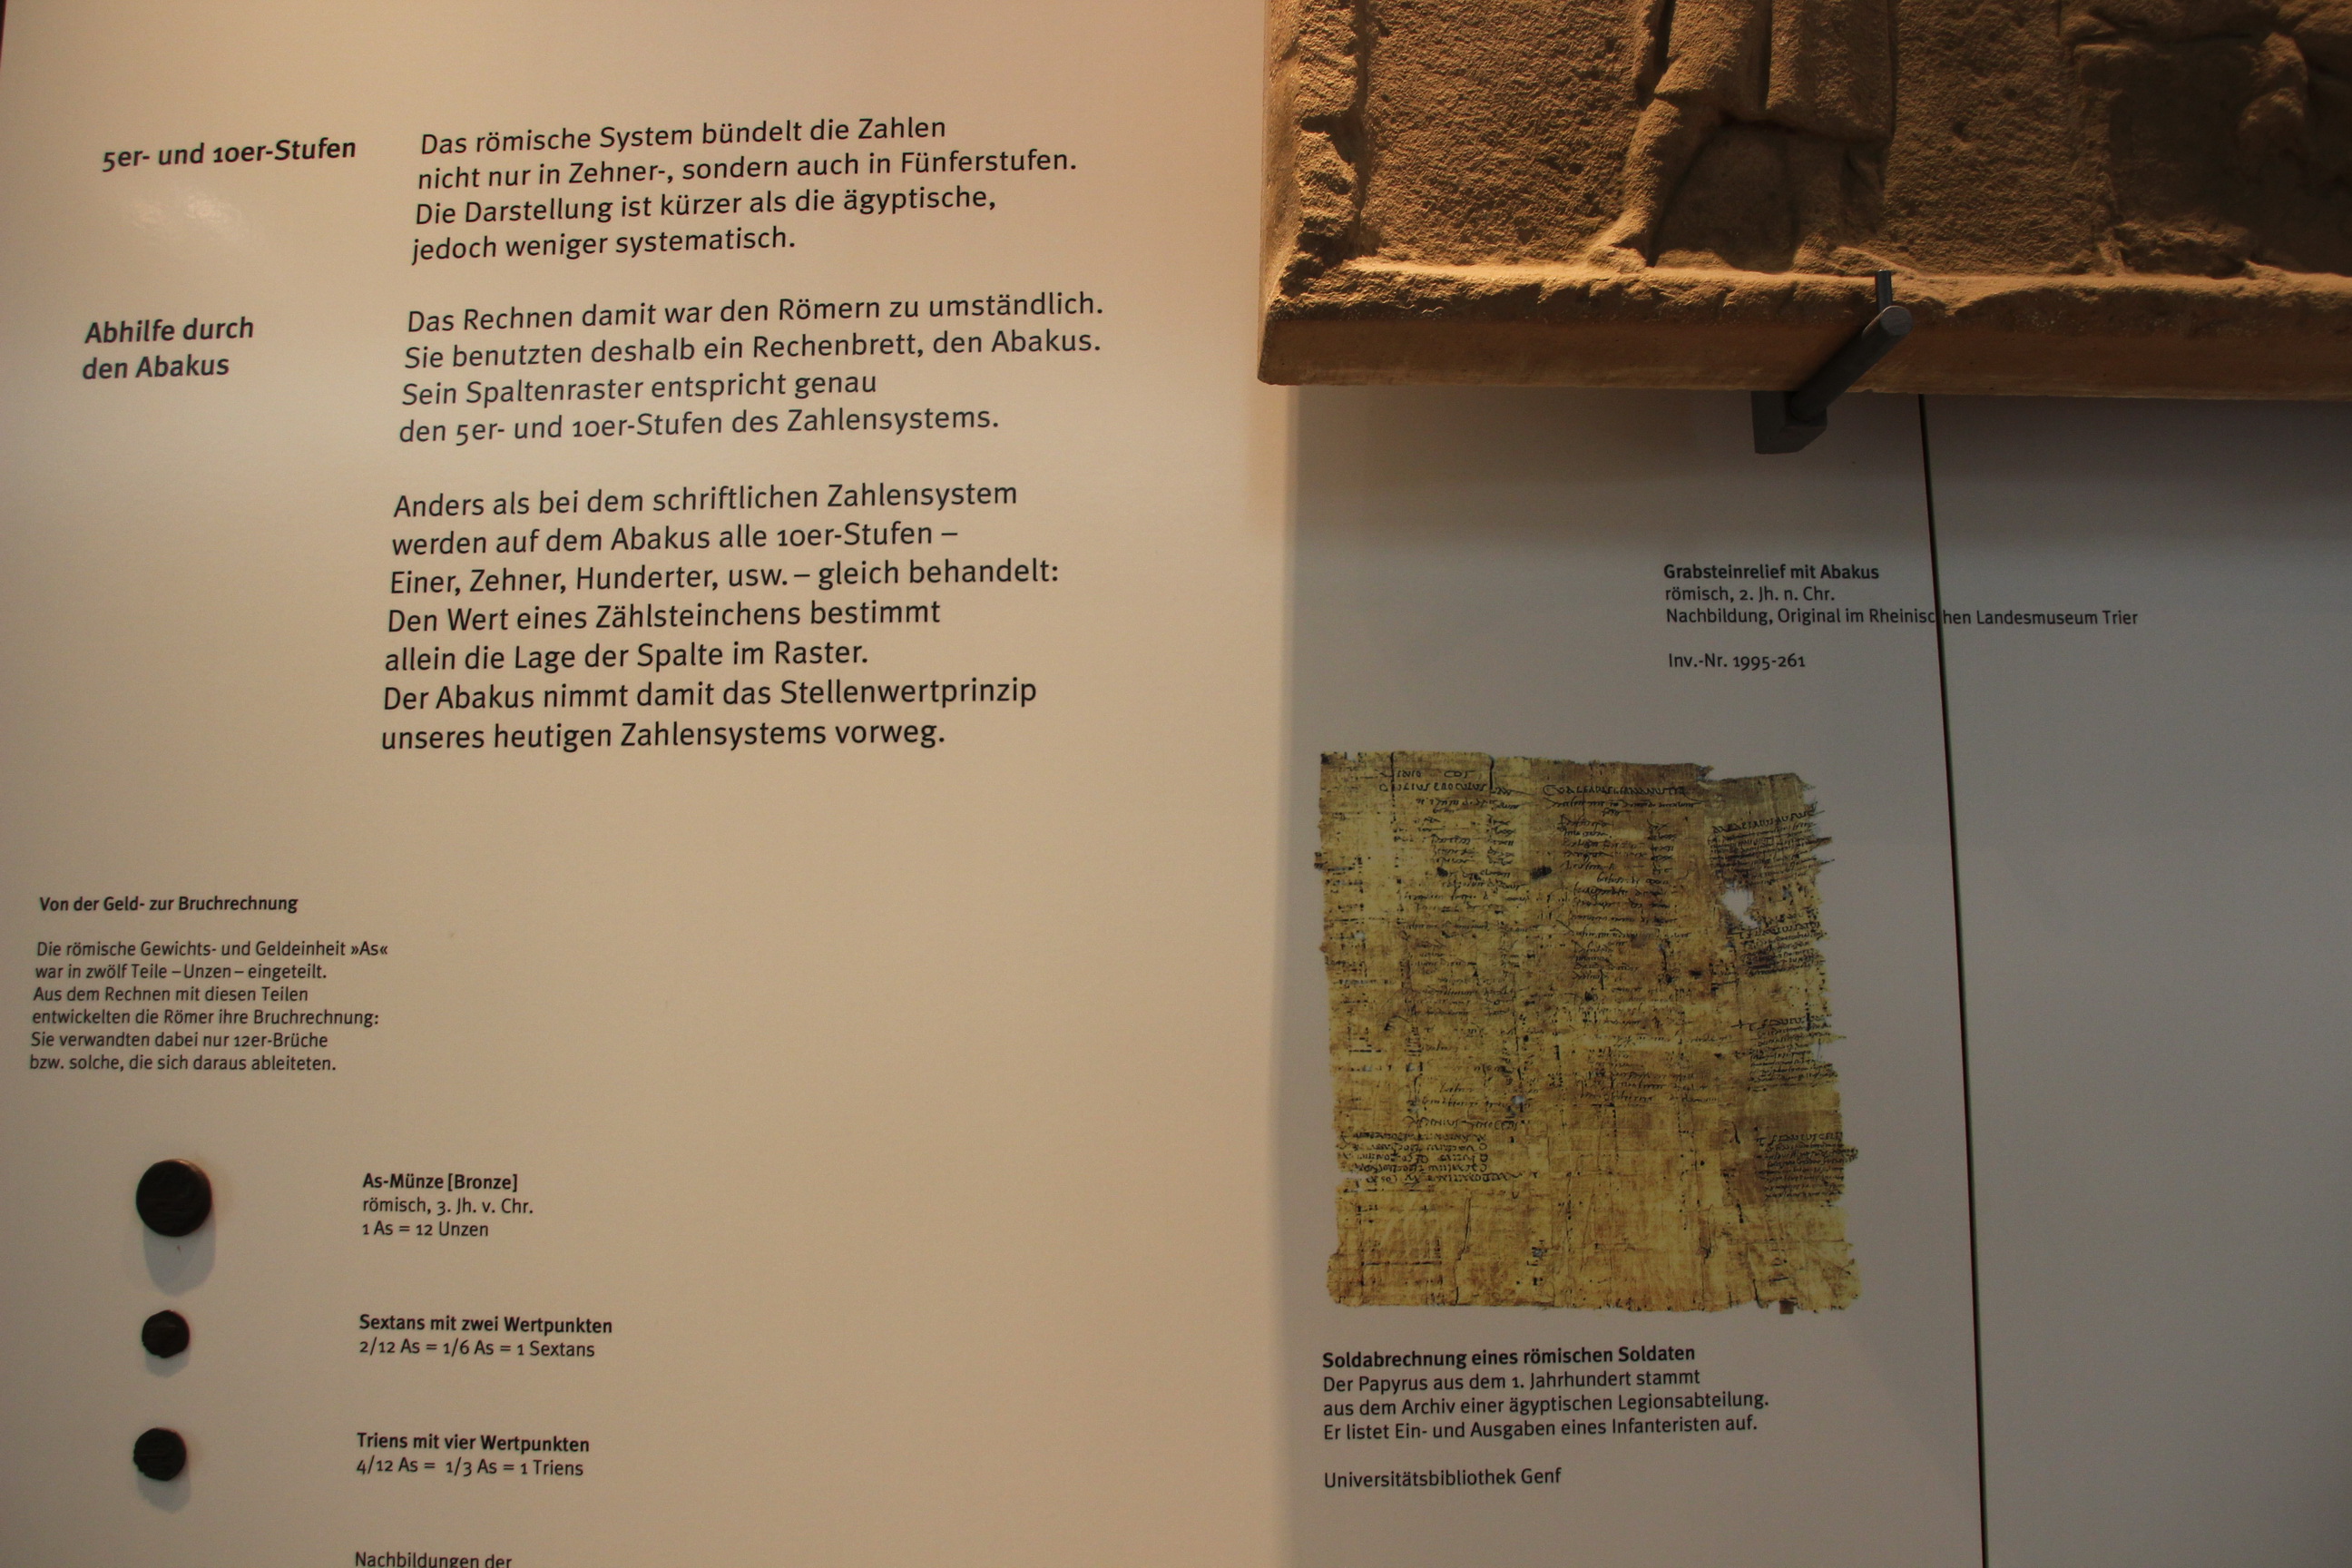 5er- und 10er-Stufen
Das römische System bündelt die Zahlen
nicht nur in Zehner-, sondern auch in Fünferstufen.
Die Darstellung ist kürzer als die ägyptische,
jedoch weniger systematisch.
Abhilfe durch
den Abakus
Das Rechnen damit war den Römern zu umständlich.
Sie benutzten deshalb ein Rechenbrett, den Abakus.
Sein Spaltenraster entspricht genau
den 5er- und 10er-Stufen des Zahlensystems.
Anders als bei dem schriftlichen Zahlensystem
werden auf dem Abakus alle 10er-Stufen –
Einer, Zehner, Hunderter, usw. – gleich behandelt:
Den Wert eines Zählsteinchens bestimmt
allein die Lage der Spalte im Raster.
Der Abakus nimmt damit das Stellenwertprinzip
unseres heutigen Zahlensystems vorweg.
Von der Geld- zur Bruchrechnung
Die römische Gewichts- und Geldeinheit »As«
war in zwölf Teile – Unzen – eingeteilt.
Aus dem Rechnen mit diesen Teilen
entwickelten die Römer ihre Bruchrechnung:
Sie verwandten dabei nur 12er-Brüche
bzw. solche, die sich daraus ableiteten.
As-Münze [Bronze]
römisch, 3. Jh. v. Chr.
1 As = 12 Unzen
Sextans mit zwei Wertpunkten
2/12 As = 1/6 As = 1 Sextans
Triens mit vier Wertpunkten
4/12 As = 1/3 As = 1 Triens
Nachbildungen der
Grabsteinrelief mit Abakus
römisch, 2. Jh. n. Chr.
Nachbildung, Original im Rheinischen Landesmuseum Trier
Inv.-Nr. 1995-261
Soldabrechnung eines römischen Soldaten
Der Papyrus aus dem 1. Jahrhundert stammt
aus dem Archiv einer ägyptischen Legionsabteilung.
Er listet Ein- und Ausgaben eines Infanteristen auf.
Universitätsbibliothek Genf